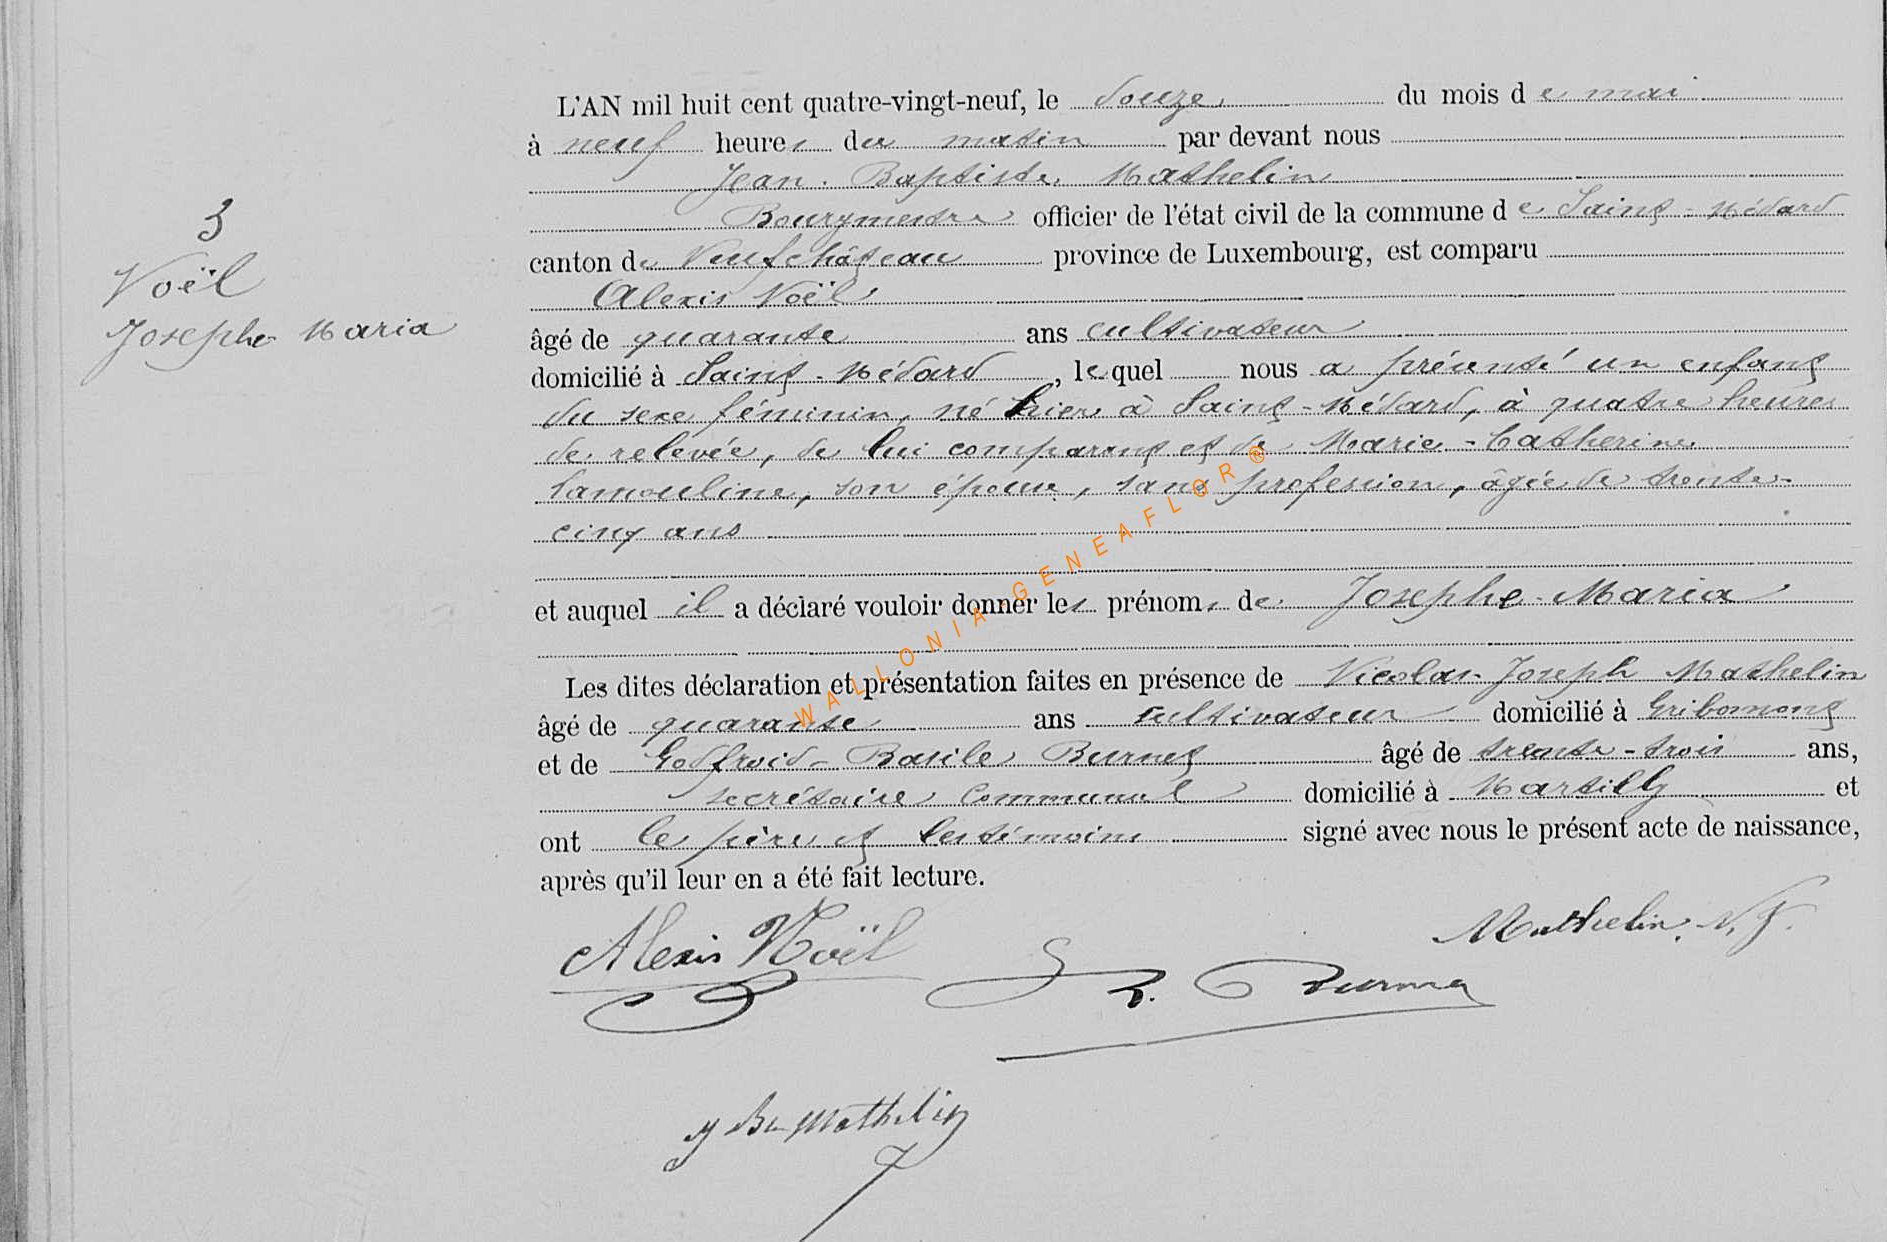 L'AN mil huit cent quatre-vingt-neuf, le douze du mois de mai
à neuf heures du matin par devant nous
Jean Baptiste Mathelin
Bourgmestre officier de l'état civil de la commune de Saint-Médard
canton de Neufchâteau province de Luxembourg, est comparu
Alexis Noël
âgé de quarante ans cultivateur
domicilié à Saint-Médard, lequel nous a présenté un enfant
du sexe féminin, né hier à Saint-Médard, à quatre heures
de relevée, de lui comparant et de Marie-Catherine
Lamouline, son épouse, sans profession, âgée de trente-
cinq ans
et auquel il a déclaré vouloir donner les prénoms de Josephe-Maria
Les dites déclaration et présentation faites en présence de Nicolas-Joseph Mathelin
âgé de quarante ans cultivateur domicilié à Gribomont
et de Godfroid-Basile Burnet âgé de trente-trois ans,
secrétaire communal domicilié à Martilly et
ont le père et les témoins signé avec nous le présent acte de naissance,
après qu'il leur en a été fait lecture.
3
Noël
Josephe Maria
Alexis Noël
Mathelin. N. J.
B. Burnet
J Bte Mathelin
WALLONIA-GENEAFLOR®